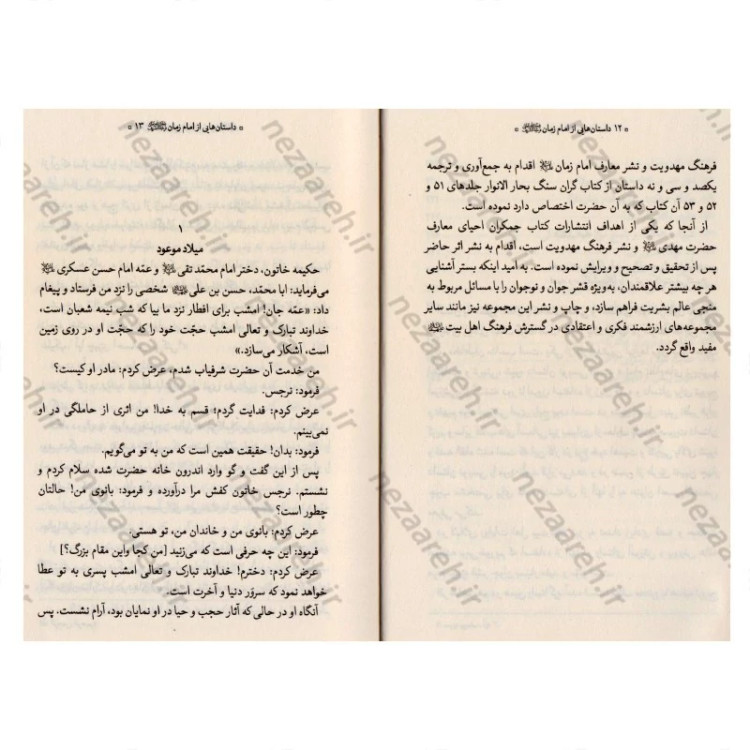 * ۱۲ داستان‌هایی از امام زمان ﷺ *
فرهنگ مهدویت و نشر معارف امام زمان ﷺ اقدام به جمع‌آوری و ترجمه
یکصد و سی و نه داستان از کتاب گران سنگ بحار الانوار جلدهای ۵۱ و
۵۲ و ۵۳ آن کتاب که به آن حضرت اختصاص دارد نموده است.
از آنجا که یکی از اهداف انتشارات کتاب جمکران احیای معارف
حضرت مهدی و نشر فرهنگ مهدویت است، اقدام به نشر اثر حاضر
پس از تحقیق و تصحیح و ویرایش نموده است. به امید اینکه بستر آشنایی
هر چه بیشتر علاقمندان، به‌ویژه قشر جوان و نوجوان را با مسائل مربوط به
منجی عالم بشریت فراهم سازد، و چاپ و نشر این مجموعه نیز مانند سایر
مجموعه‌های ارزشمند فکری و اعتقادی در گسترش فرهنگ اهل بیت
مفید واقع گردد.
* داستان‌هایی از امام زمان ۱۳ *
۱
میلاد موعود
حکیمه خاتون، دختر امام محمّد تقی و عمّه امام حسن عسکری
می‌فرماید: ابا محمّد، حسن بن علی شخصی را نزد من فرستاد و پیغام
داد: «عمّه جان! امشب برای افطار نزد ما بیا که شب نیمه شعبان است،
خداوند تبارک و تعالی امشب حجّت خود را که حجّت او در روی زمین
است، آشکار می‌سازد.»
من خدمت آن حضرت شرفیاب شدم، عرض کردم: مادر او کیست؟
فرمود: نرجس.
عرض کردم: فدایت گردم؛ قسم به خدا! من اثری از حاملگی در او
نمی‌بینم.
فرمود: بدان! حقیقت همین است که من به تو می‌گویم.
پس از این گفت و گو وارد اندرون خانه حضرت شده سلام کردم و
نشستم. نرجس خاتون کفش مرا درآورده و فرمود: بانوی من! حالتان
چطور است؟
عرض کردم: بانوی من و خاندان من، تو هستی.
فرمود: این چه حرفی است که می‌زنید [من کجا واین مقام بزرگ؟]
عرض کردم: دخترم! خداوند تبارک و تعالی امشب پسری به تو عطا
خواهد نمود که سرور دنیا و آخرت است.
آنگاه او در حالی که آثار حجب و حیا در او نمایان بود، آرام نشست. پس
nezaareh.ir
nezaareh.ir
nezaareh.ir
nezaareh.ir
nezaareh.ir
nezaareh.ir